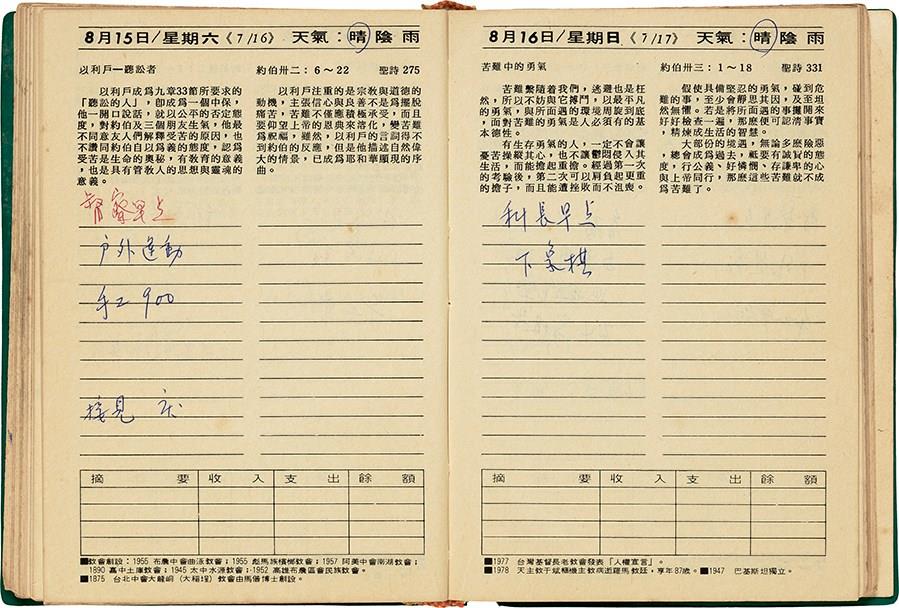 8月15日/星期六《7/16》 天氣：晴陰雨
以利戶—聽訟者 約伯卅二：6～22 聖詩 275
以利戶成爲九章33節所要求的
「聽訟的人」，卽成爲一個中保，
他一開口說話，就以公平的否定態
度，對約伯及三個朋友生氣，他最
不同意人們解釋受苦的原因，也
不讚同約伯自以爲義的態度，認爲
受苦是生命的奧秘，有敎育的意義
，也是具有管敎人的思想與靈魂的
意義。
以利戶注重的是宗敎與道德的
動機，主張信心與良善不是爲擺脫
痛苦，苦難不僅應積極承受，而且
要仰望上帝的恩典來溶化的，變苦難
爲祝福，雖然，以利戶的言詞得不
到約伯的反應，但是他描述自然偉
大的情景，已成爲耶和華顯現的序
曲。
早点
戶外運動
手工 900
接見
摘要 收入 支出 餘額
■敎會創設：1955 布農中會曲泳敎會；1955 彪馬族檳榔敎會；1957 阿美中會南湖敎會；
1890 高中土庫敎會；1945 太中水源敎會；1952 高雄布農區會民族敎會。
■1875 台北中會大龍峒（大稻埕）敎會由馬偕博士創設。
8月16日/星期日《7/17》 天氣：晴陰雨
苦難中的勇氣 約伯卅三：1～18 聖詩 331
苦難繫隨着我們，逃避也是枉
然，所以不妨與它搏鬥，以最平凡
的勇氣，與所面遇的環境周旋到底
，面對苦難的勇氣是人必須有的基
本德性。
有生存勇氣的人，一定不會讓
憂苦操縱其心，也不讓鬱悶侵入其
生活，而能擔起重擔。經過第一次
的考驗後，第二次可以肩負起更重
的擔子，而且能遭挫敗而不沮喪。
假使具備堅忍的勇氣，碰到危
難的事，至少會靜思其因，及至坦
然無懼。若是將所面遇的事攤開來
好好檢查一遍，那麼便可認清事實
，精煉成生活的智慧。
大部份的境遇，無論多麼險惡
，總會成爲過去，祇要有誠實的態
度，行公義、好憐憫、存謙卑的心
與上帝同行，那麼這些苦難就不成
爲苦難了。
科長早点
下象棋
摘要 收入 支出 餘額
■1977 台灣基督長老敎會發表「人權宣言」。
■1978 天主敎于斌樞機主敎病逝羅馬敎廷，享年87歲。■1947 巴基斯坦獨立。